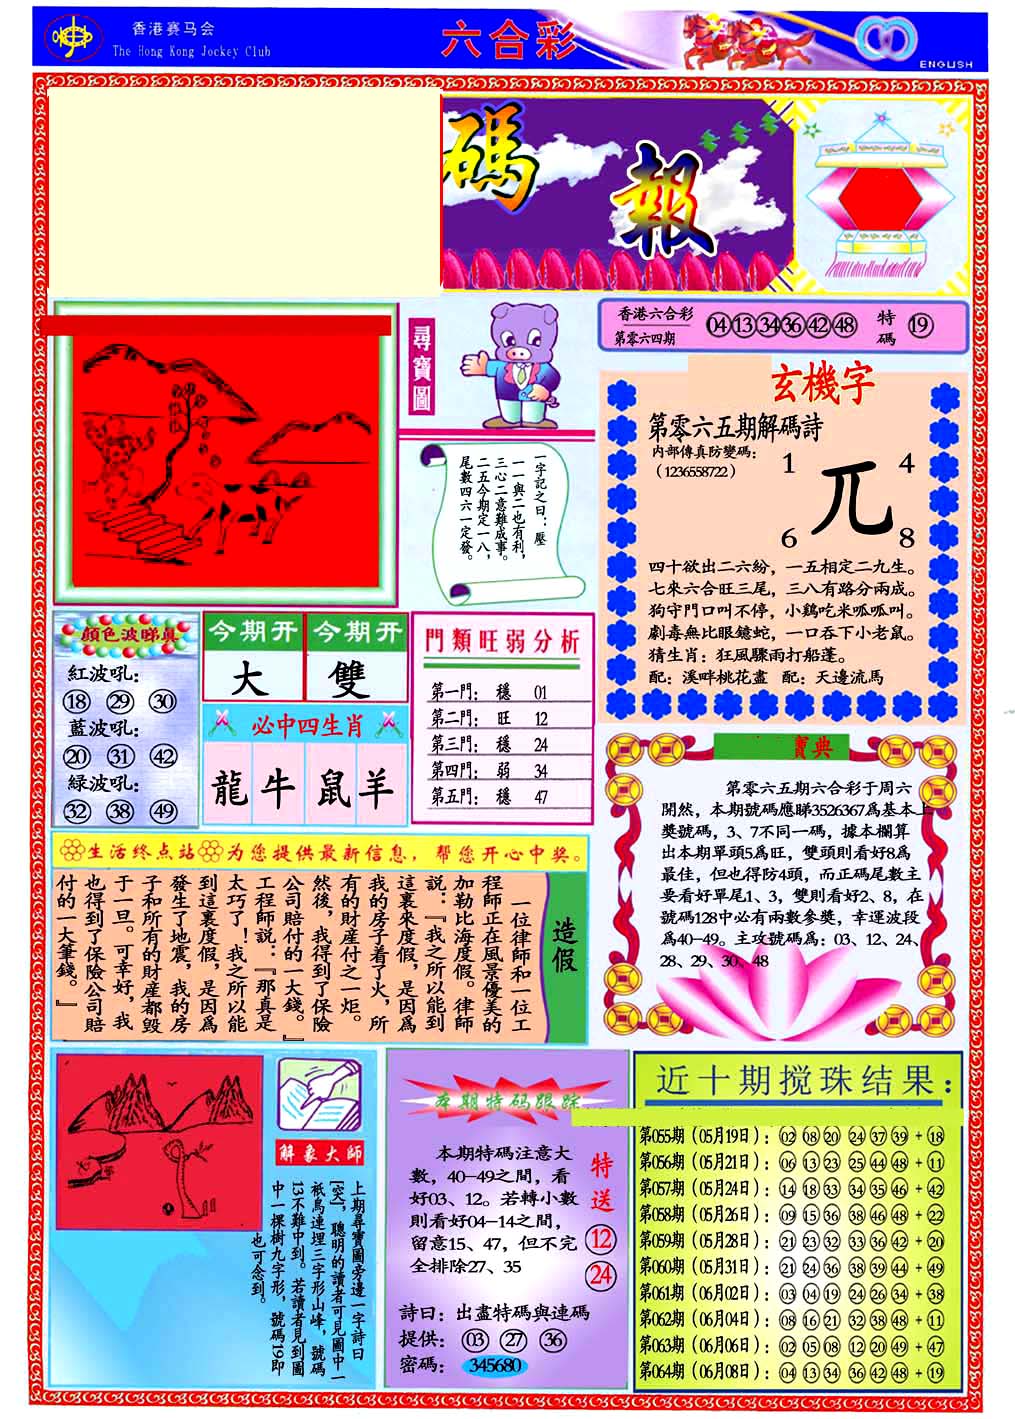 香港赛马会
The Hong Kong Jockey Club
六合彩
ENGLISH
碼報
尋寶圖
一字記之曰：壓
一一與二也有利，
三心二意難成事。
二五今期定一八，
尾數四六一定發。
香港六合彩
第零六四期
04 13 34 36 42 48 特碼 19
玄機字
第零六五期解碼詩
内部傳真防變碼：
（1236558722）
1 4
兀
6 8
四十欲出二六紛，一五相定二九生。
七來六合旺三尾，三八有路分兩成。
狗守門口叫不停，小鷄吃米呱呱叫。
劇毒無比眼鏡蛇，一口吞下小老鼠。
猜生肖：狂風驟雨打船蓬。
配：溪畔桃花盡 配：天邊流馬
顔色波睇真
紅波吼：
18 29 30
藍波吼：
20 31 42
緑波吼：
32 38 49
今期开 今期开
大 雙
必中四生肖
龍 牛 鼠 羊
門類旺弱分析
第一門： 穩 01
第二門： 旺 12
第三門： 穩 24
第四門： 弱 34
第五門： 穩 47
寶典
第零六五期六合彩于周六
開然，本期號碼應睇3526367爲基本上
獎號碼，3、7不同一碼，據本欄算
出本期單頭5爲旺，雙頭則看好8爲
最佳，但也得防4頭，而正碼尾數主
要看好單尾1、3，雙則看好2、8，在
號碼128中必有兩數參獎，幸運波段
爲40-49。主攻號碼爲：03、12、24、
28、29、30、48
生活终点站 为您提供最新信息，帮您开心中奖。
造假
一位律師和一位工
程師正在風景優美的
加勒比海度假。律師
説：『我之所以能到
這裏來度假，是因爲
我的房子着了火，所
有的財産付之一炬。
然後，我得到了保險
公司賠付的一大錢。』
工程師説：『那真是
太巧了！我之所以能
到這裏度假，是因爲
發生了地震，我的房
子和所有的財産都毁
于一旦。可幸好，我
也得到了保險公司賠
付的一大筆錢。』
解象大師
上期尋寶圖旁邊一字詩曰
[突]，聰明的讀者可見圖中一
衹鳥連埋三字形山峰，號碼
13不難中到。若讀者見到圖
中一棵樹九字形，號碼19即
也可念到。
本期特码跟踪
本期特碼注意大
數，40-49之間，看
好03、12。若轉小數
則看好04-14之間，
留意15、47，但不完
全排除27、35
特送
12
24
詩曰：出盡特碼與連碼
提供：03 27 36
密碼：345680
近十期搅珠结果：
第055期（05月19日）：02 08 20 24 37 39 + 18
第056期（05月21日）：06 13 23 25 44 48 + 11
第057期（05月24日）：14 18 33 34 35 46 + 42
第058期（05月26日）：09 15 36 38 46 48 + 22
第059期（05月28日）：21 23 32 33 36 42 + 20
第060期（05月31日）：21 24 36 38 39 44 + 49
第061期（06月02日）：03 04 19 24 26 34 + 38
第062期（06月04日）：08 16 21 32 38 48 + 11
第063期（06月06日）：02 05 08 12 20 49 + 47
第064期（06月08日）：04 13 34 36 42 48 + 19